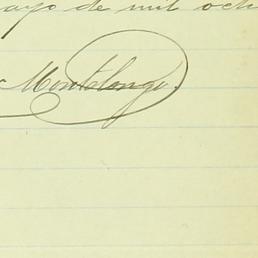 ayo de mil och
Montalongo.